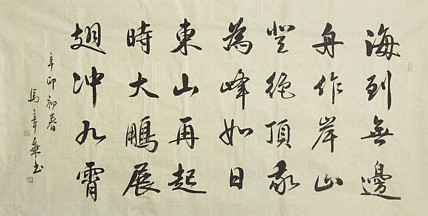 海到無邊
舟作岸山
登絶頂我
為峰如日
東山再起
時大鵬展
翅冲九霄
辛卯初春
馬章